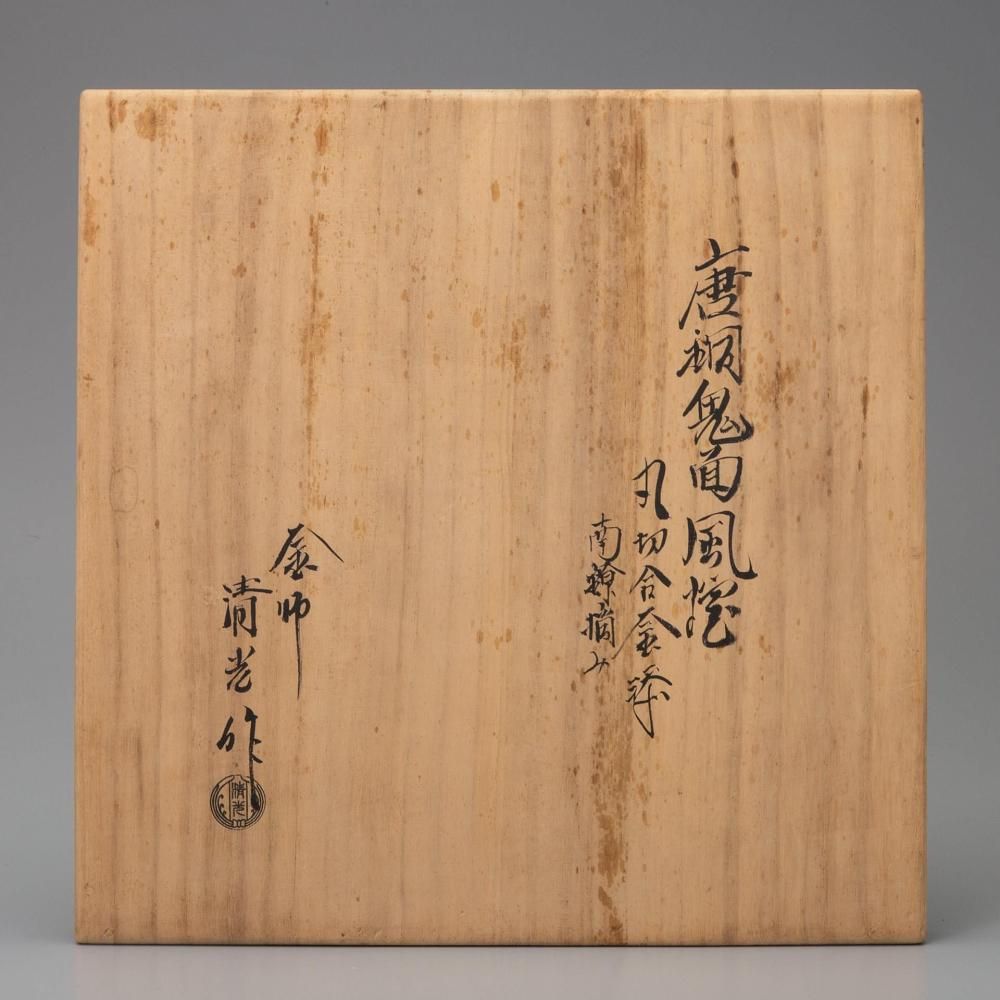 唐銅鬼面風炉
丸切合釜添
南鐐摘み
釜師
清光作
清光